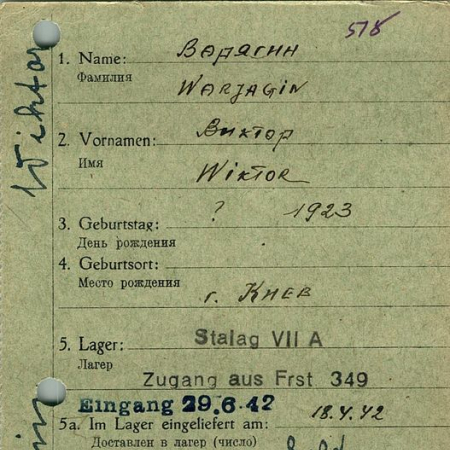 518
1. Name: Варягин
Фамилия
WARJAGIN
2. Vornamen: Виктор
Имя
WIKTOR
3. Geburtstag: ? 1923
День рождения
4. Geburtsort:
Место рождения
г. Киев
5. Lager: Stalag VII A
Лагер
Zugang aus Frst 349
Eingang 29.6.42
18.4.42
5a. Im Lager eingeliefert am:
Доставлен в лагер (число)
Wiktor